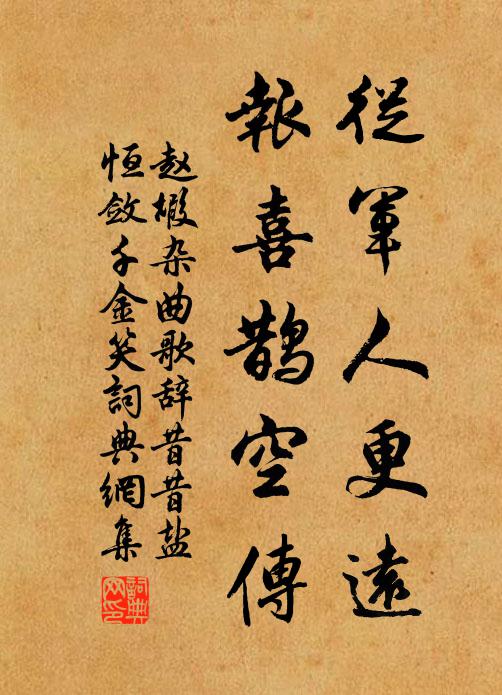 從軍人更遠
報喜鵲空傳
赵嘏杂曲歌辞昔昔盐
恆斂千金笑詞典網集
詞典网印